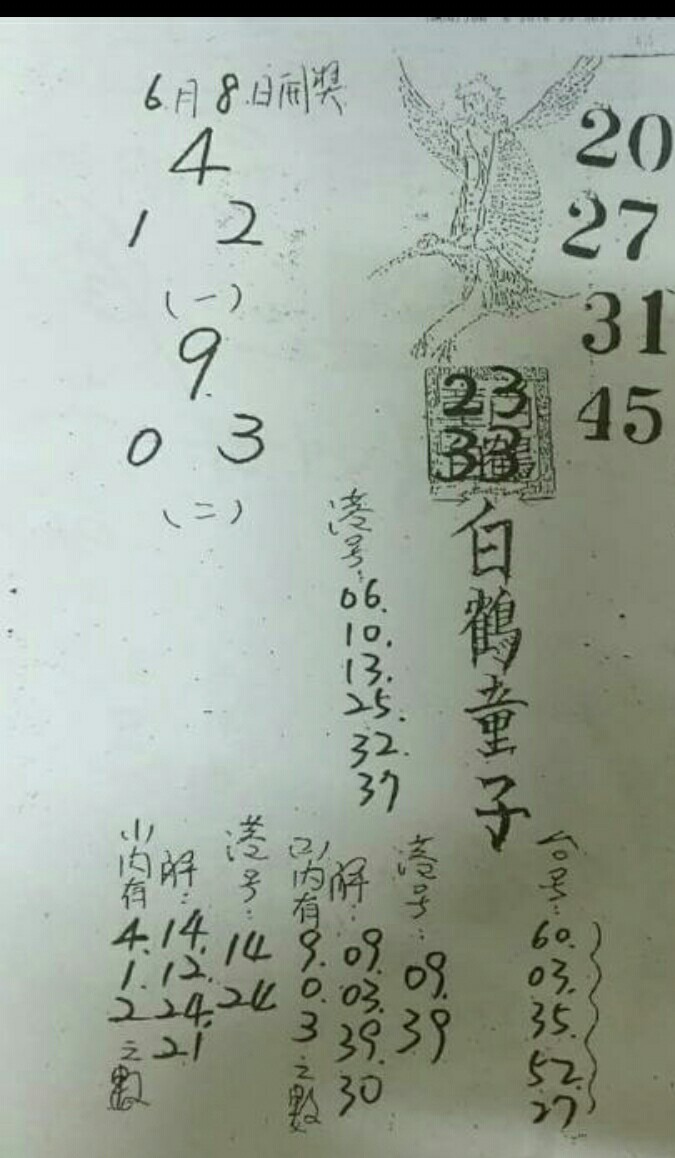 6月8日開獎
4
1 2
(一)
9
0 3
(二)
20
27
31
45
23
33
白鶴童子
港号:
06.
10.
13.
25.
32.
37
(一)內有
4.
1.
2
之數
解:
14.
12.
24.
21
港号:
14
24
(二)內有
9.
0.
3
之數
解:
09.
03.
39.
30
港号:
09.
39
台号:
60.
03.
35.
52.
27.